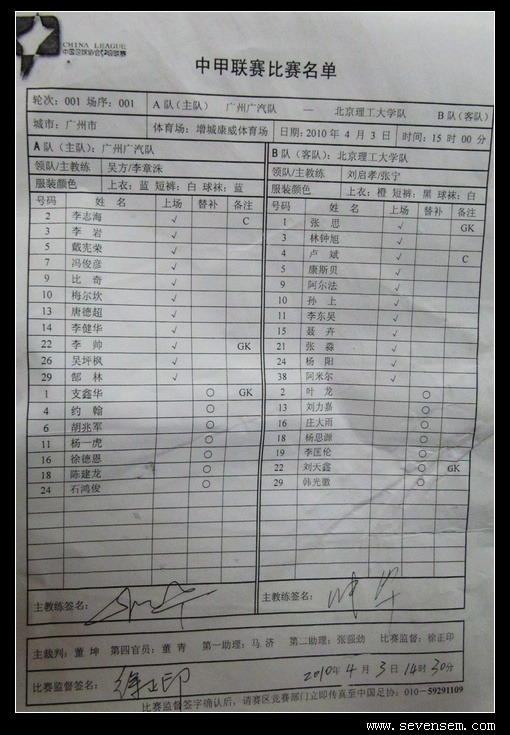 CHINA LEAGUE
中国足球协会甲级联赛
中甲联赛比赛名单
轮次：001 场序：001 A 队（主队） 广州广汽队 — 北京理工大学队 B 队（客队）
城市：广州市 体育场：增城康威体育场 日期：2010 年 4 月 3 日 时间：15 时 00 分
A 队（主队）：广州广汽队
领队/主教练 吴方/李章洙
服装颜色 上衣：蓝 短裤：白 球袜：蓝
号码 姓 名 上场 替补 备注
2 李志海 √ C
3 李 岩 √
5 戴宪荣 √
7 冯俊彦 √
9 比 奇 √
10 梅尔坎 √
13 唐德超 √
14 李健华 √
22 李 帅 √ GK
26 吴坪枫 √
29 郜 林 √
1 支鑫华 ○ GK
4 约 翰 ○
6 胡兆军 ○
11 杨一虎 ○
16 徐德恩 ○
18 陈建龙 ○
24 石鸿俊 ○
主教练签名：
B 队（客队）：北京理工大学队
领队/主教练 刘启孝/张宁
服装颜色 上衣：橙 短裤：黑 球袜：白
号码 姓 名 上场 替补 备注
1 张 思 √ GK
3 林钟旭 √
4 卢 斌 √ C
5 康斯贝 √
9 阿尔法 √
10 孙 上 √
11 李东吴 √
15 聂 卉 √
21 张 淼 √
24 杨 阳 √
38 阿米尔 √
2 叶 龙 ○
13 刘力嘉 ○
16 庄大雨 ○
18 杨思源 ○
19 李匡伦 ○
22 刘天鑫 ○ GK
29 韩光徽 ○
主教练签名：
主裁判：董 坤 第四官员：董 青 第一助理：马 济 第二助理：张强劲 比赛监督：徐正印
比赛监督签名： 徐正印 2010 年 4 月 3 日 14 时 30 分
比赛监督签字确认后，请赛区竞赛部门立即传真至中国足协：010-59291109
www.sevensem.com